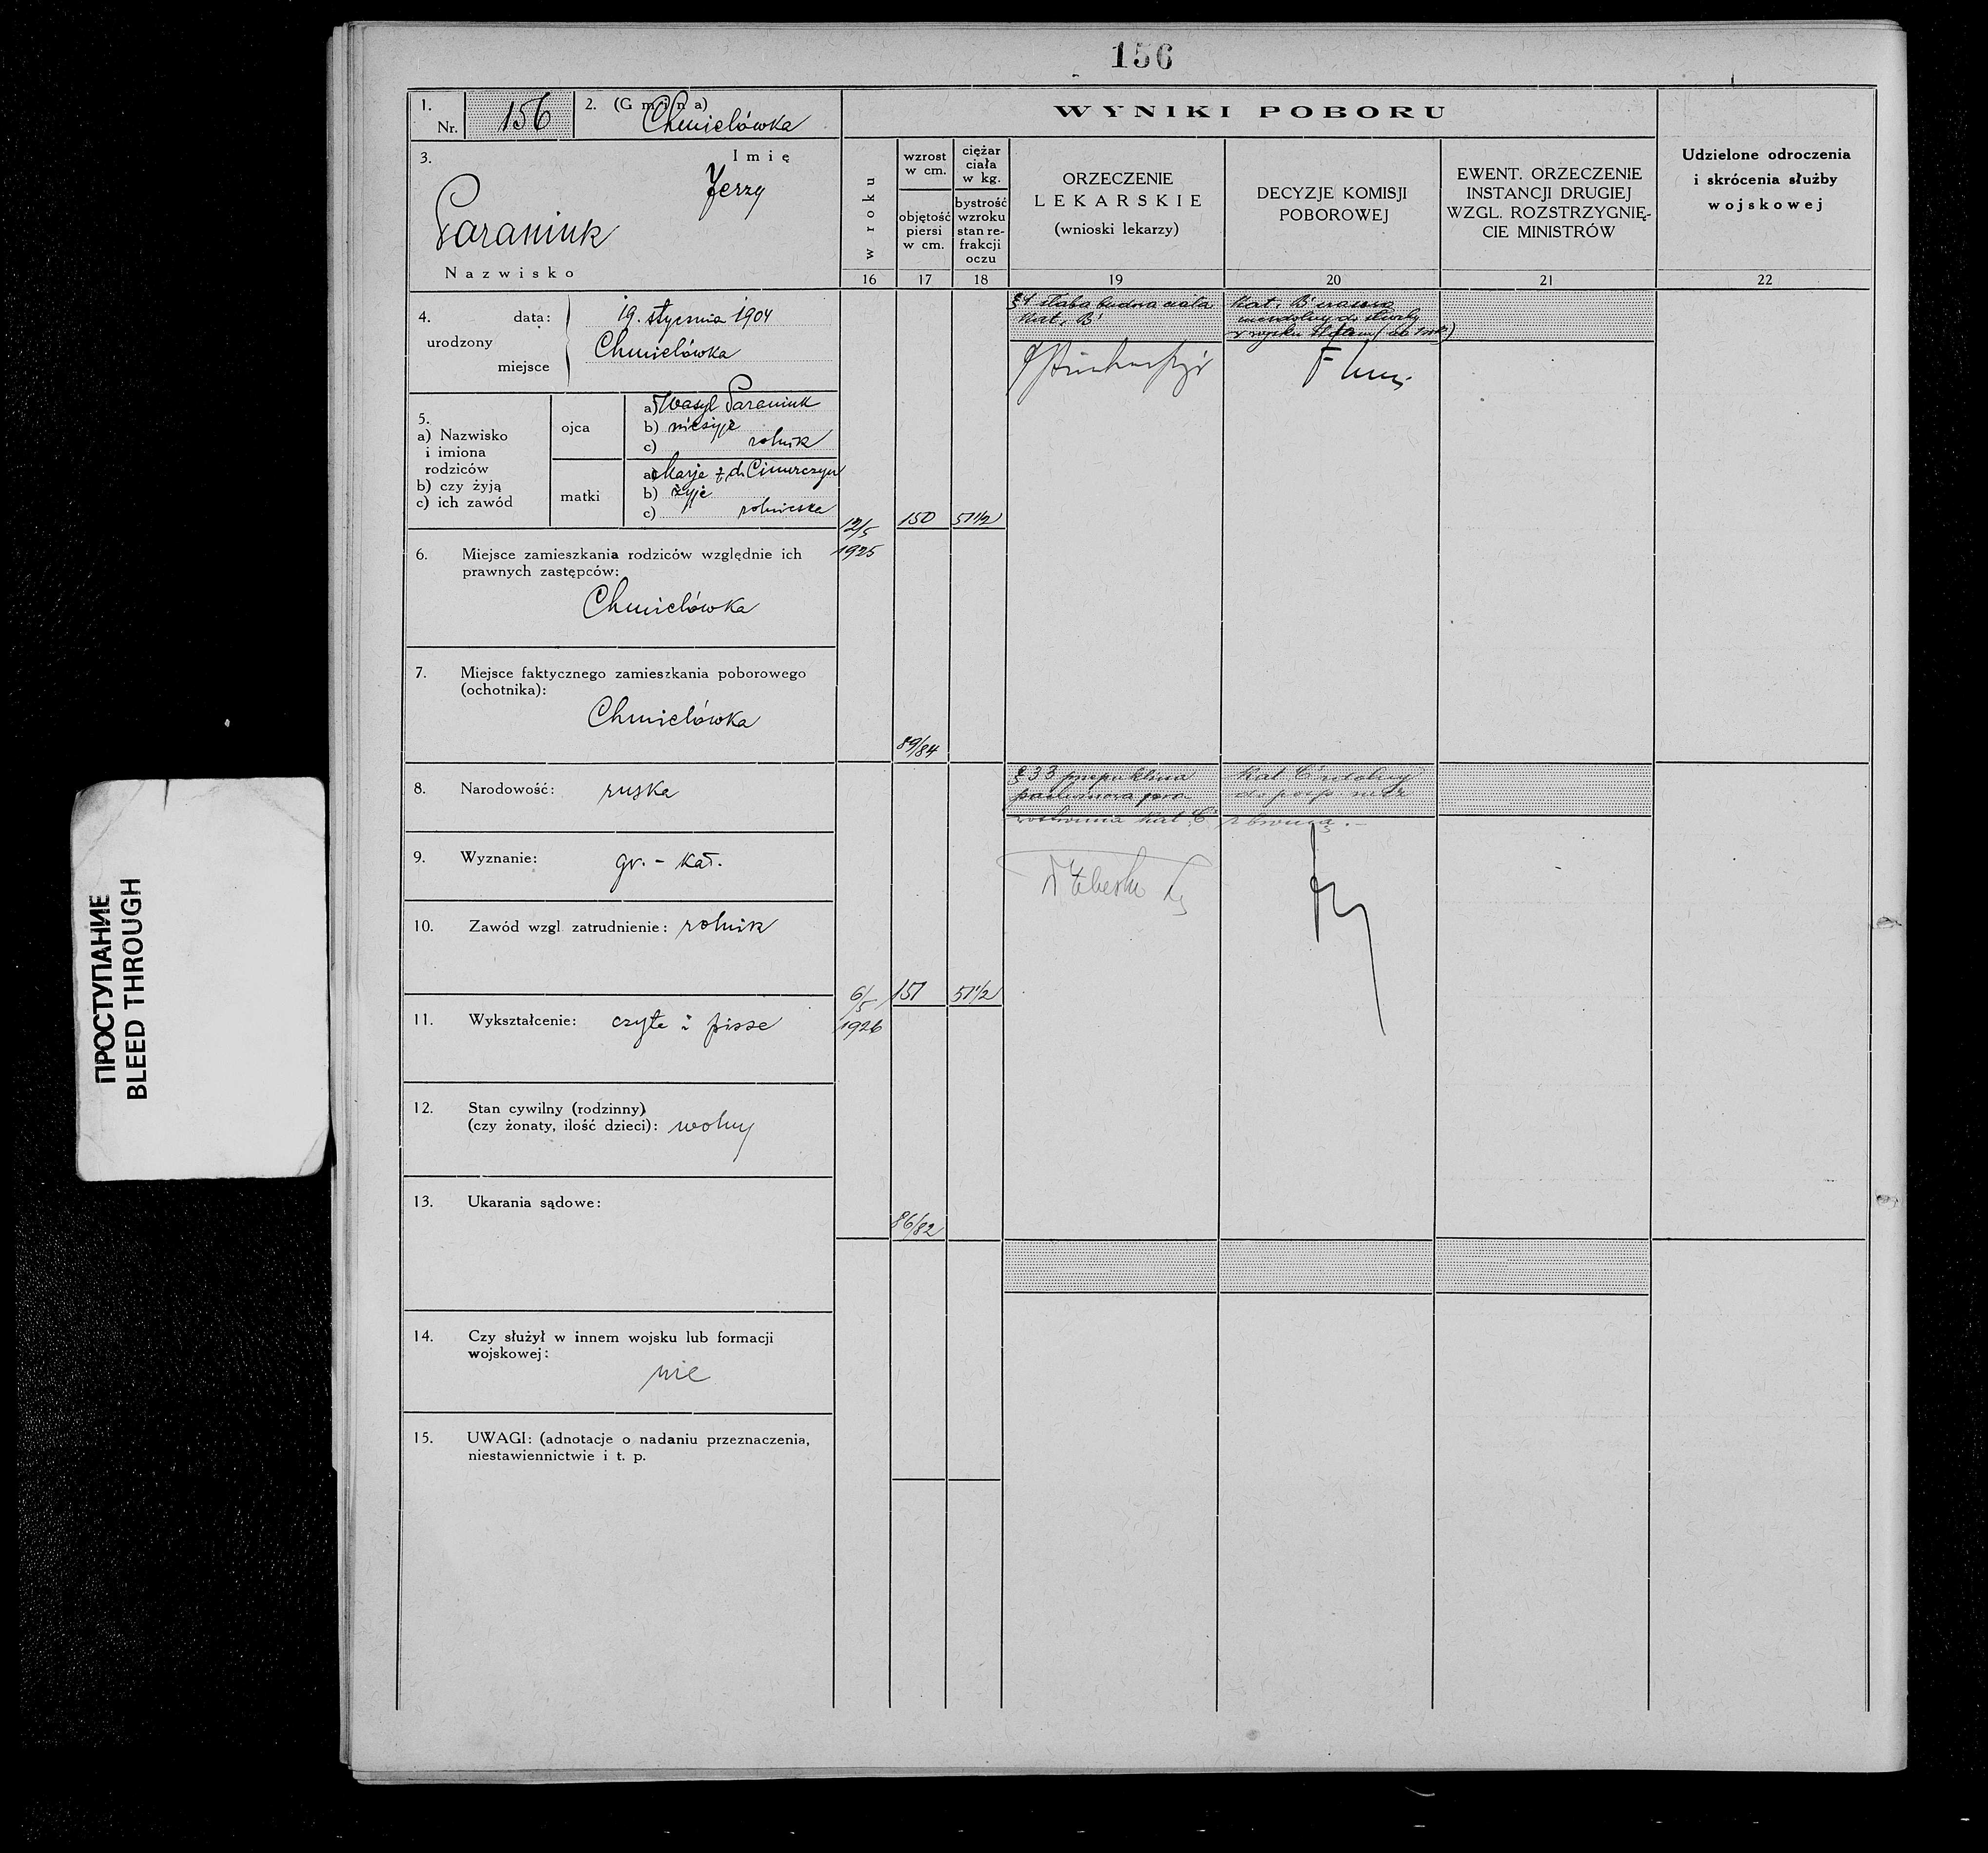 156
1.
Nr. 156
2. (Gmina)
Chmielówka
3.
Imię
Jerzy
Paraniuk
Nazwisko
4. urodzony
data: 19. stycznia 1904
miejsce Chmielówka
5.
a) Nazwisko
i imiona
rodziców
b) czy żyją
c) ich zawód
ojca
a) Wasyl Paraniuk
b) nieżyje
c) rolnik
matki
a) Marja z d.
b) żyje
c) rolniczka
6. Miejsce zamieszkania rodziców względnie ich
prawnych zastępców:
Chmielówka
7. Miejsce faktycznego zamieszkania poborowego
(ochotnika):
Chmielówka
8. Narodowość: ruska
9. Wyznanie: gr. - kat.
10. Zawód wzgl zatrudnienie: rolnik
11. Wykształcenie: czyta i pisze
12. Stan cywilny (rodzinny)
(czy żonaty, ilość dzieci): wolny
13. Ukarania sądowe:
14. Czy służył w innem wojsku lub formacji
wojskowej:
nie
15. UWAGI: (adnotacje o nadaniu przeznaczenia,
niestawiennictwie i t. p.
WYNIKI POBORU
w roku
wzrost
w cm.
objętość
piersi
w cm.
ciężar
ciała
w kg.
bystrość
wzroku
stan re-
frakcji
oczu
ORZECZENIE
LEKARSKIE
(wnioski lekarzy)
DECYZJE KOMISJI
POBOROWEJ
EWENT. ORZECZENIE
INSTANCJI DRUGIEJ
WZGL. ROZSTRZYGNIĘ-
CIE MINISTRÓW
Udzielone odroczenia
i skrócenia służby
wojskowej
16 17 18 19 20 21 22
§4 słaba budowa ciała
Kat. B
Kat. B
niezdolny do służby
w wojsku
12/5
1925
150
51 1/2
89/84
§33 przepuklina
pachwinowa
Kat C
Kat C zdolny
do posp.
z bronią
6/5
1926
151
51 1/2
86/82
ПРОСТУПАНИЕ
BLEED THROUGH